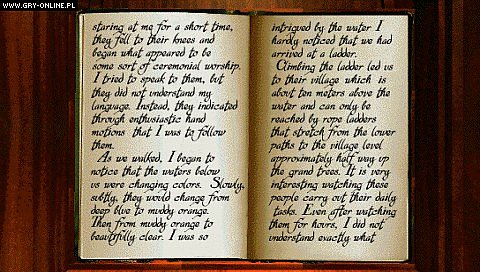 WWW.GRY-ONLINE.PL
staring at me for a short time,
they fell to their knees and
began what appeared to be
some sort of ceremonial worship.
I tried to speak to them, but
they did not understand my
language. Instead, they indicated
through enthusiastic hand
motions that I was to follow
them.
As we walked, I began to
notice that the waters below
us were changing colors. Slowly,
subtly, they would change from
deep blue to muddy orange.
Then from muddy orange to
beautifully clear. I was so
intrigued by the water I
hardly noticed that we had
arrived at a ladder.
Climbing the ladder led us
to their village which is
about ten meters above the
water and can only be
reached by rope ladders
that stretch from the lower
paths to the village level
approximately half way up
the grand trees. It is very
interesting watching these
people carry out their daily
tasks. Even after watching
them for hours, I did not
understand exactly what